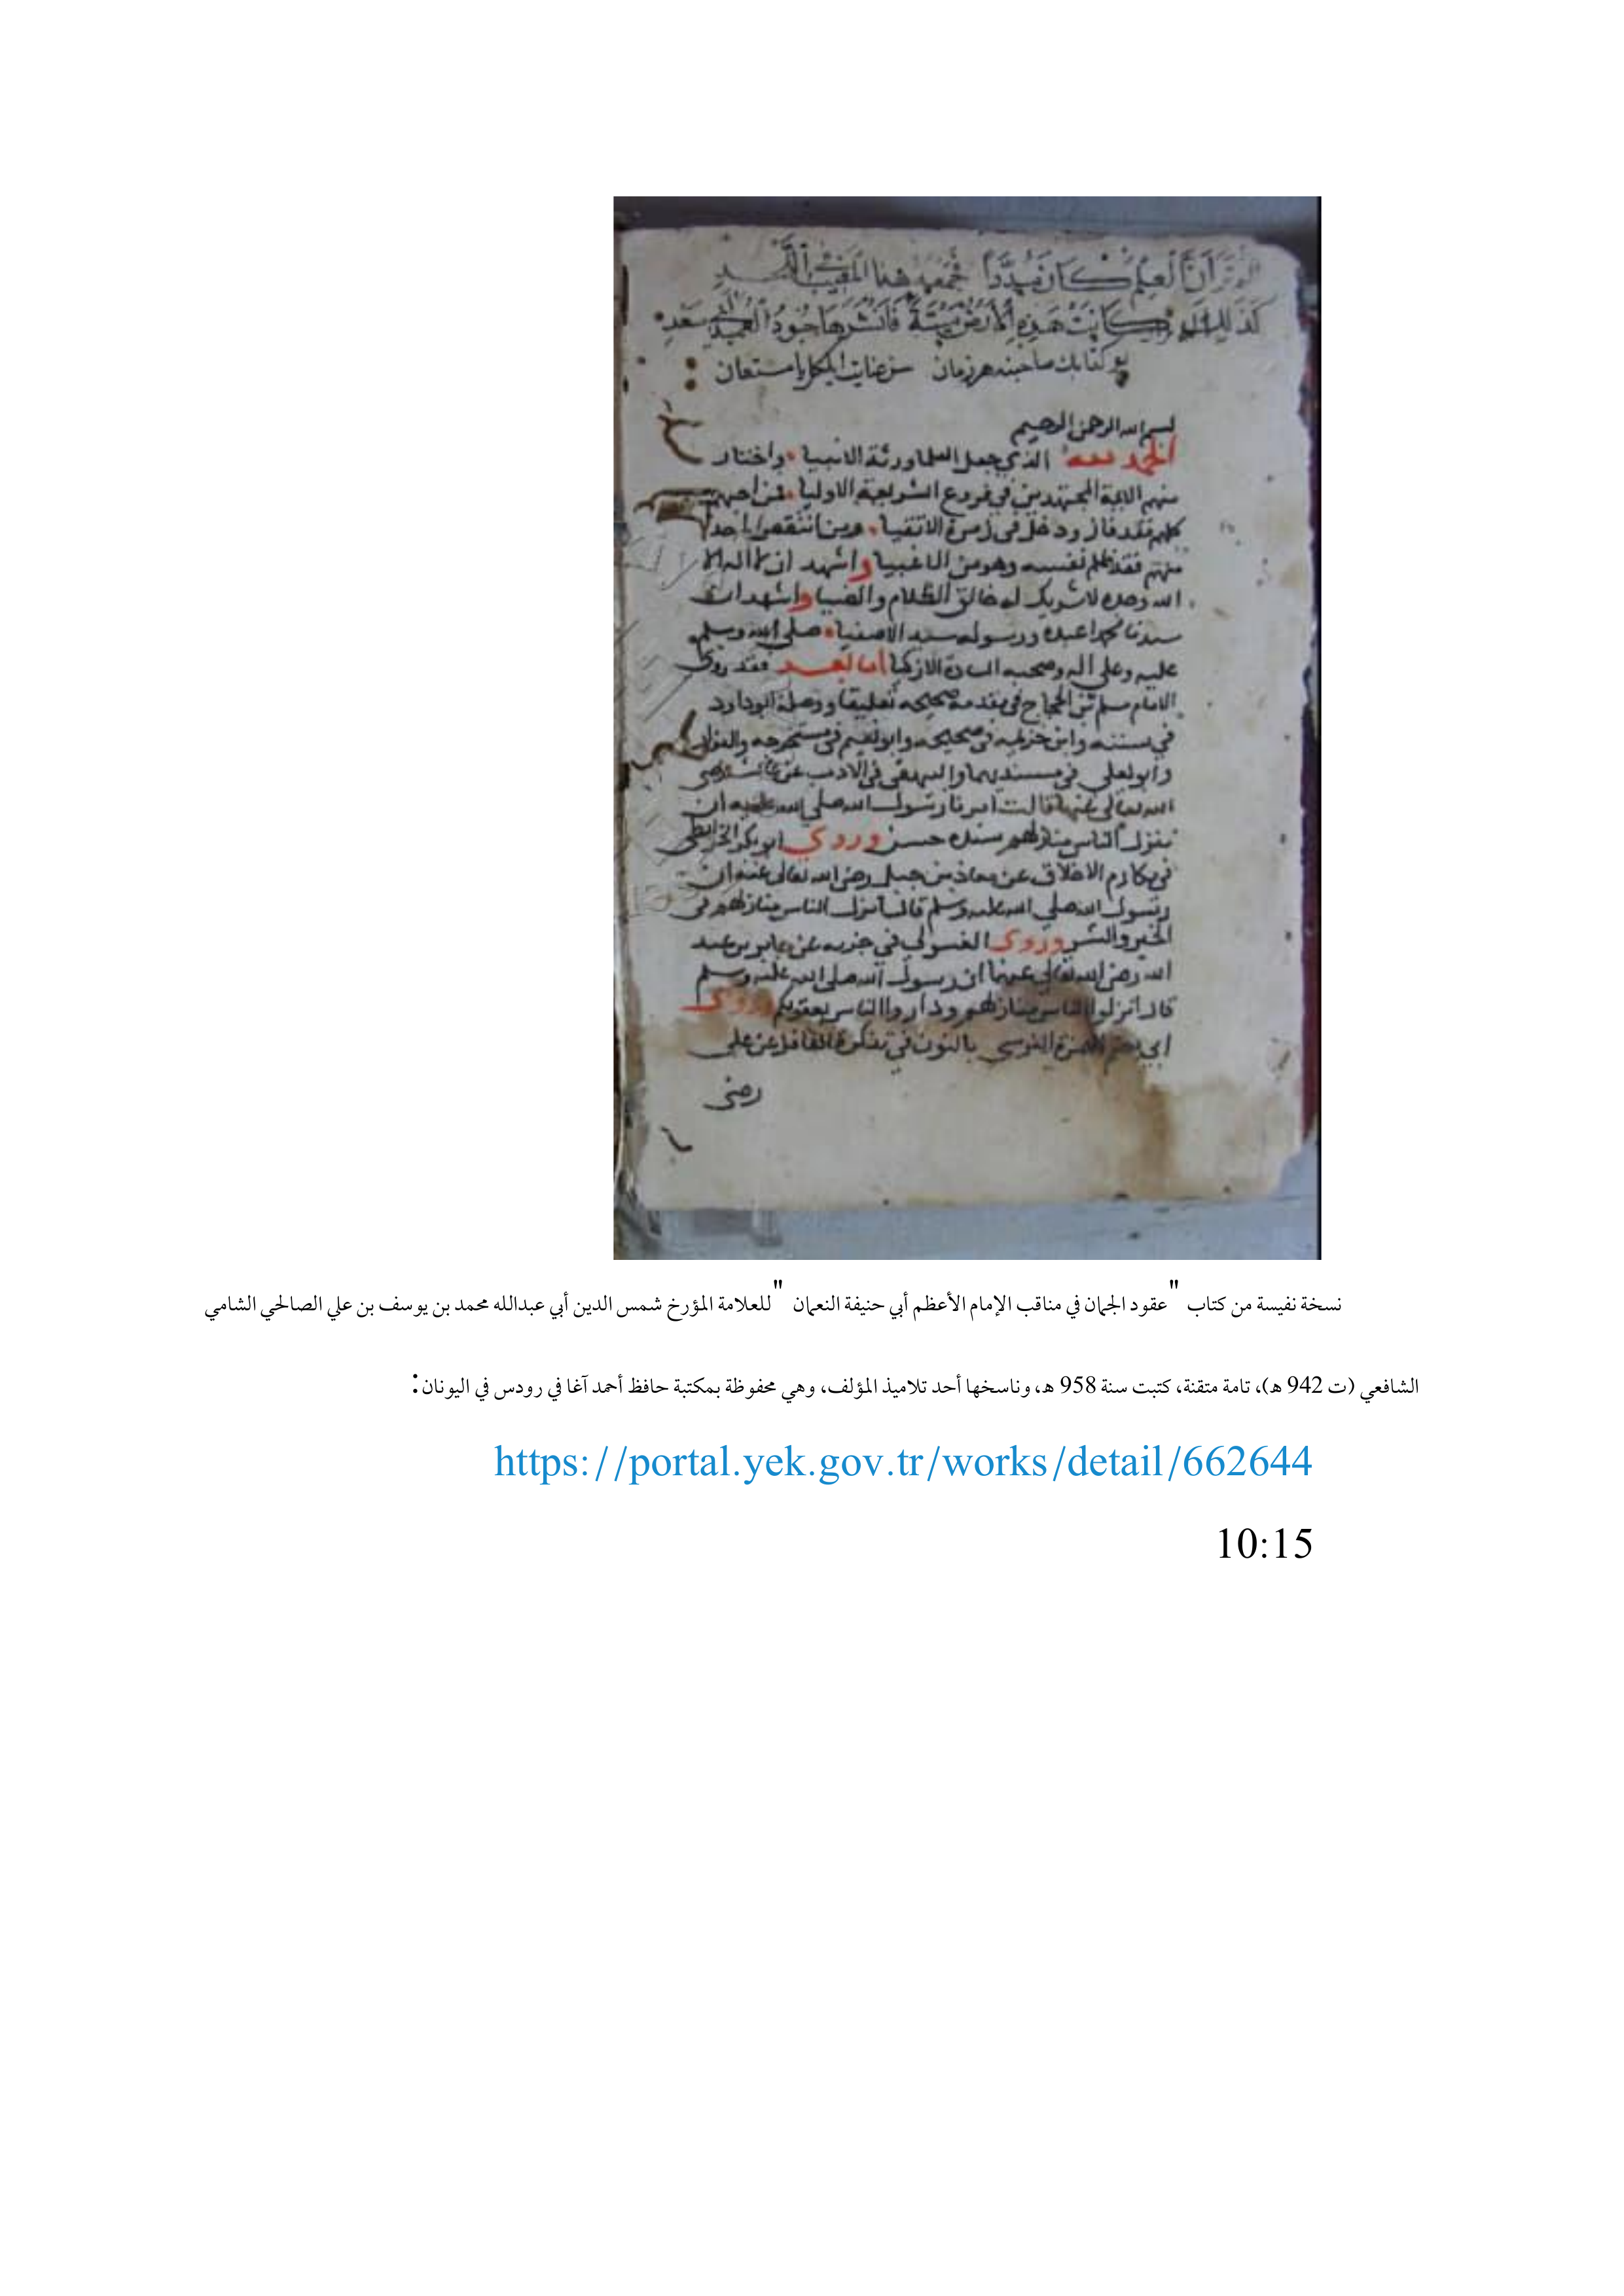 الم تر أن العلم كان مبددا فجمعه هذا المغيب في اللحد
كذلك كانت هذه الأرض ميتة فأنشرها جود العميد أبي سعد
بو كتابك صاحبنه هر زمان
بسم الله الرحمن الرحيم
الحمد لله الذي جعل العلما ورثة الانبيا، واختار
منهم الايمة المجتهدين في فروع الشريعة الاوليا، فمن احبهم
كلهم فقد فاز ودخل في زمرة الاتقيا، ومن انتقص احدا
منهم فقد ظلم نفسه وهو من الاغبيا واشهد ان لا اله الا
الله وحده لا شريك له خالق الظلام والضيا واشهد ان
سيدنا محمدا عبده ورسوله سيد الاصفيا، صلى الله وسلم
عليه وعلى اله وصحبه السادة الازكيا اما بعد فقد روى
الامام مسلم بن الحجاج في مقدمة صحيحه تعليقا ووصله ابو داود
في سننه وابن خزيمة في صحيحه وابو نعيم في مستخرجه والبزار
وابو يعلى في مسنديهما والبيهقي في الادب عن عائشة رضي
الله تعالى عنها قالت امرنا رسول الله صلى الله عليه ان
ننزل الناس منازلهم سنده حسن وروى ابو بكر الخرايطي
في مكارم الاخلاق عن معاذ بن جبل رضى الله تعالى عنه ان
رسول الله صلى الله عليه وسلم قال انزل الناس منازلهم في
الخير والشر وروى الغسولي في جزيه عن جابر بن عبد
الله رضى الله تعالى عنهما ان رسول الله صلى الله عليه وسلم
قال انزلوا الناس منازلهم وداروا الناس بعقولكم وروى
النرسي بالنون في تذكرة الغافل عن علي
رضى
نسخة نفيسة من كتاب "عقود الجمان في مناقب الإمام الأعظم أبي حنيفة النعمان "للعلامة المؤرخ شمس الدين أبي عبدالله محمد بن يوسف بن علي الصالحي الشامي
الشافعي (ت 942 هـ)، تامة متقنة، كتبت سنة 958 هـ، وناسخها أحد تلاميذ المؤلف، وهي محفوظة بمكتبة حافظ أحمد آغا في رودس في اليونان:
https://portal.yek.gov.tr/works/detail/662644
10:15